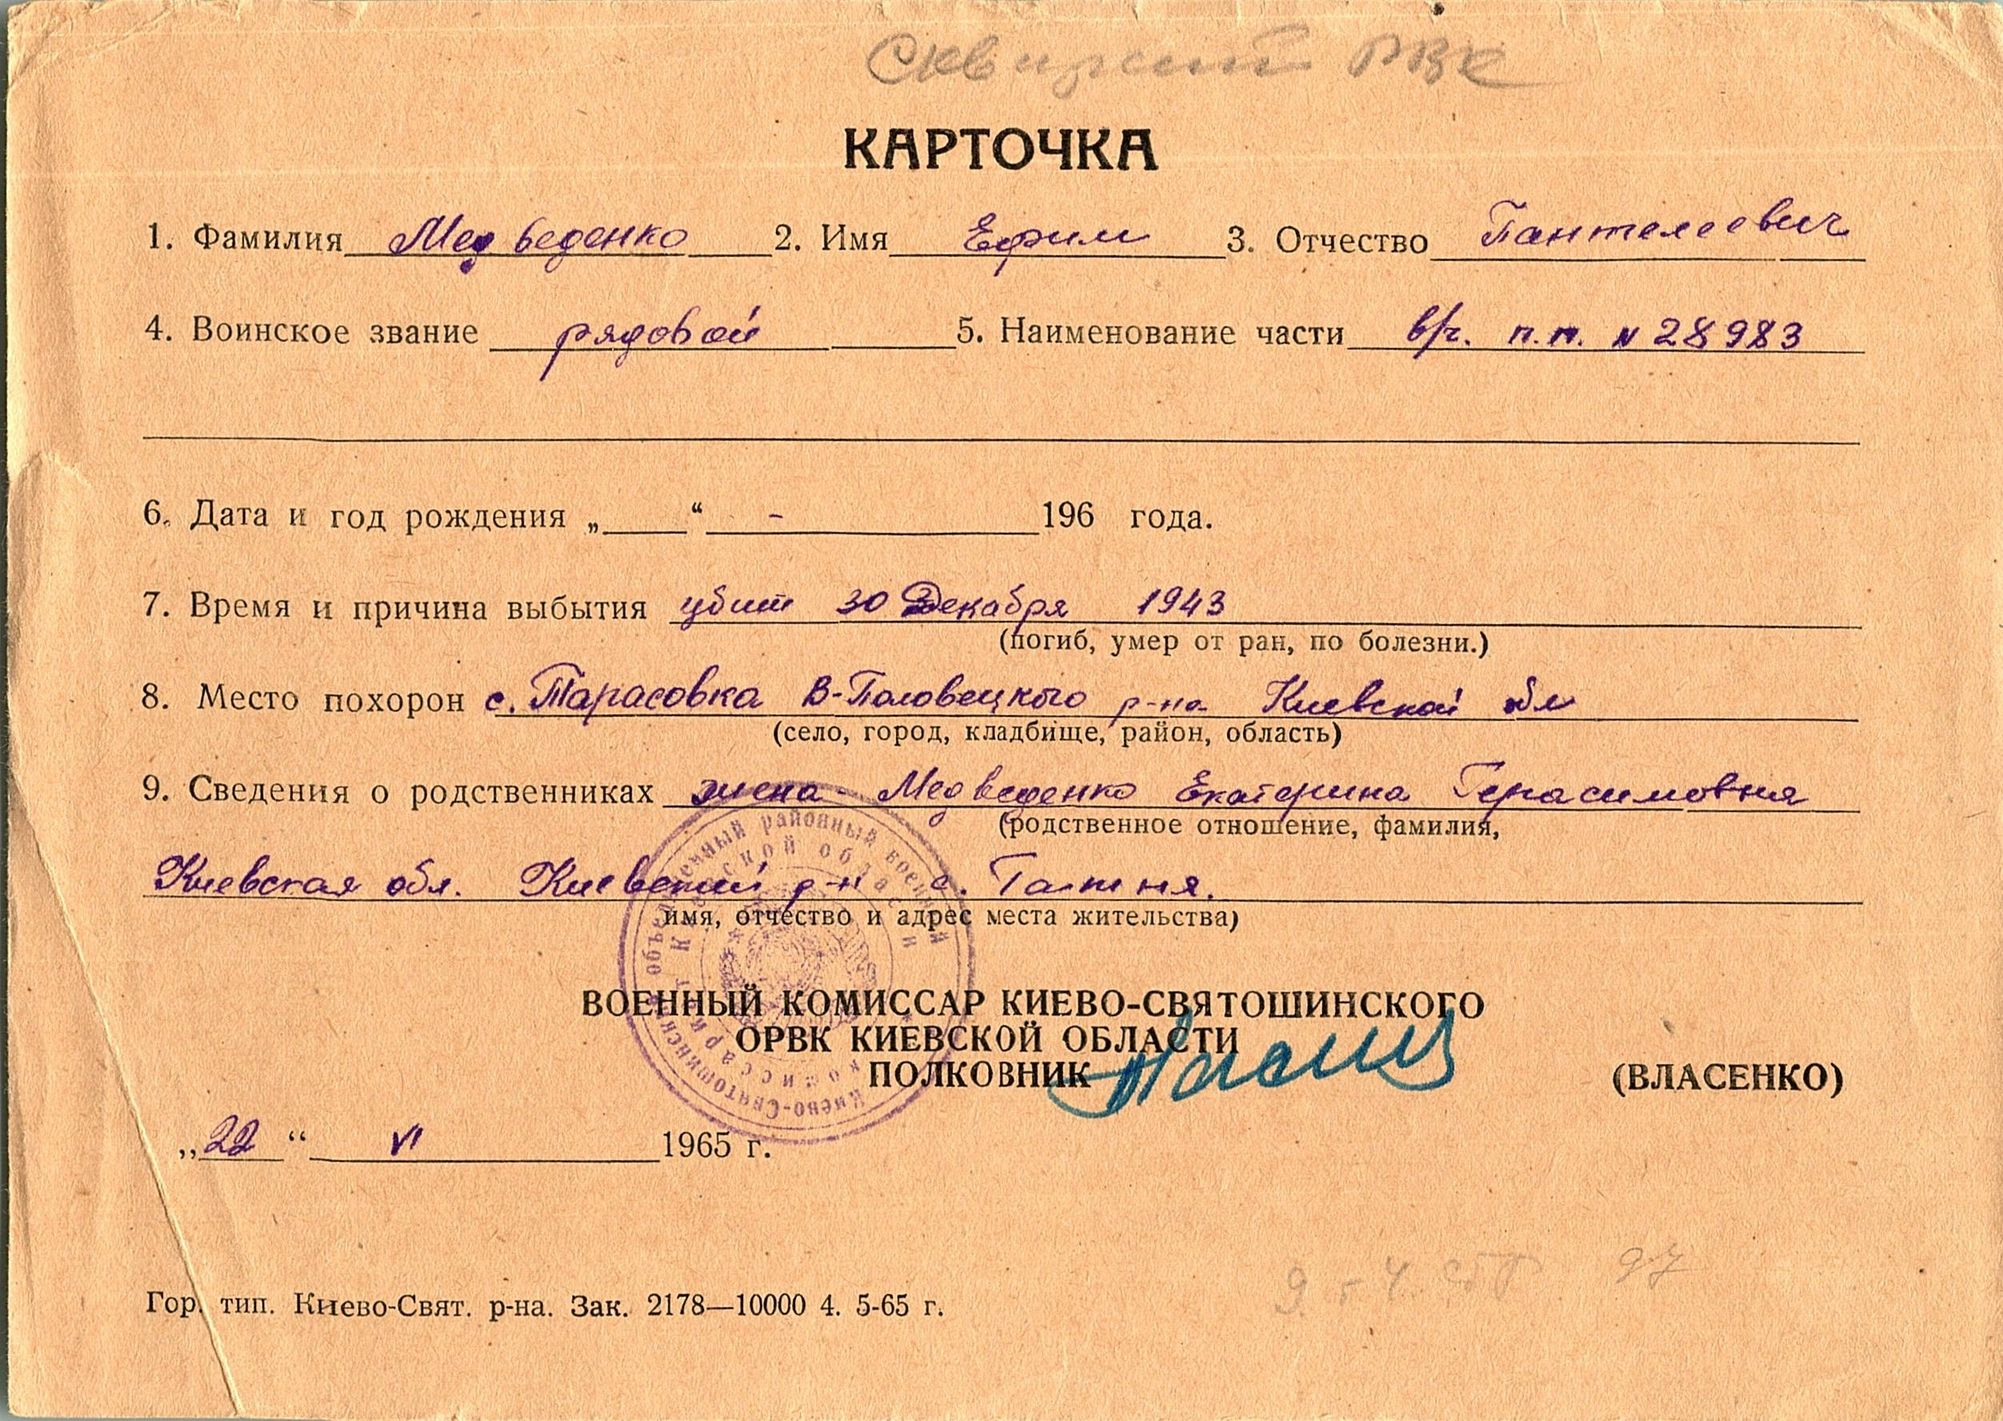 Сквирский РВК
КАРТОЧКА
1. Фамилия Медведенко 2. Имя Ефим 3. Отчество Пантелеевич
4. Воинское звание рядовой 5. Наименование части в/ч. п.п. № 28983
6. Дата и год рождения „ “ - 196 года.
7. Время и причина выбытия убит 30 Декабря 1943
(погиб, умер от ран, по болезни.)
8. Место похорон с. Тарасовка В-Половецкого р-на Киевской обл
(село, город, кладбище, район, область)
9. Сведения о родственниках жена - Медведенко Екатерина Герасимовна
(родственное отношение, фамилия,
Киевская обл. Киевский р-н с. Гатня.
имя, отчество и адрес места жительства)
Киево-Святошинский объединенный районный военный
комиссариат Киевской области
ВОЕННЫЙ КОМИССАР КИЕВО-СВЯТОШИНСКОГО
ОРВК КИЕВСКОЙ ОБЛАСТИ
ПОЛКОВНИК (ВЛАСЕНКО)
„22“ VI 1965 г.
Гор. тип. Киево-Свят. р-на. Зак. 2178—10000 4. 5-65 г.